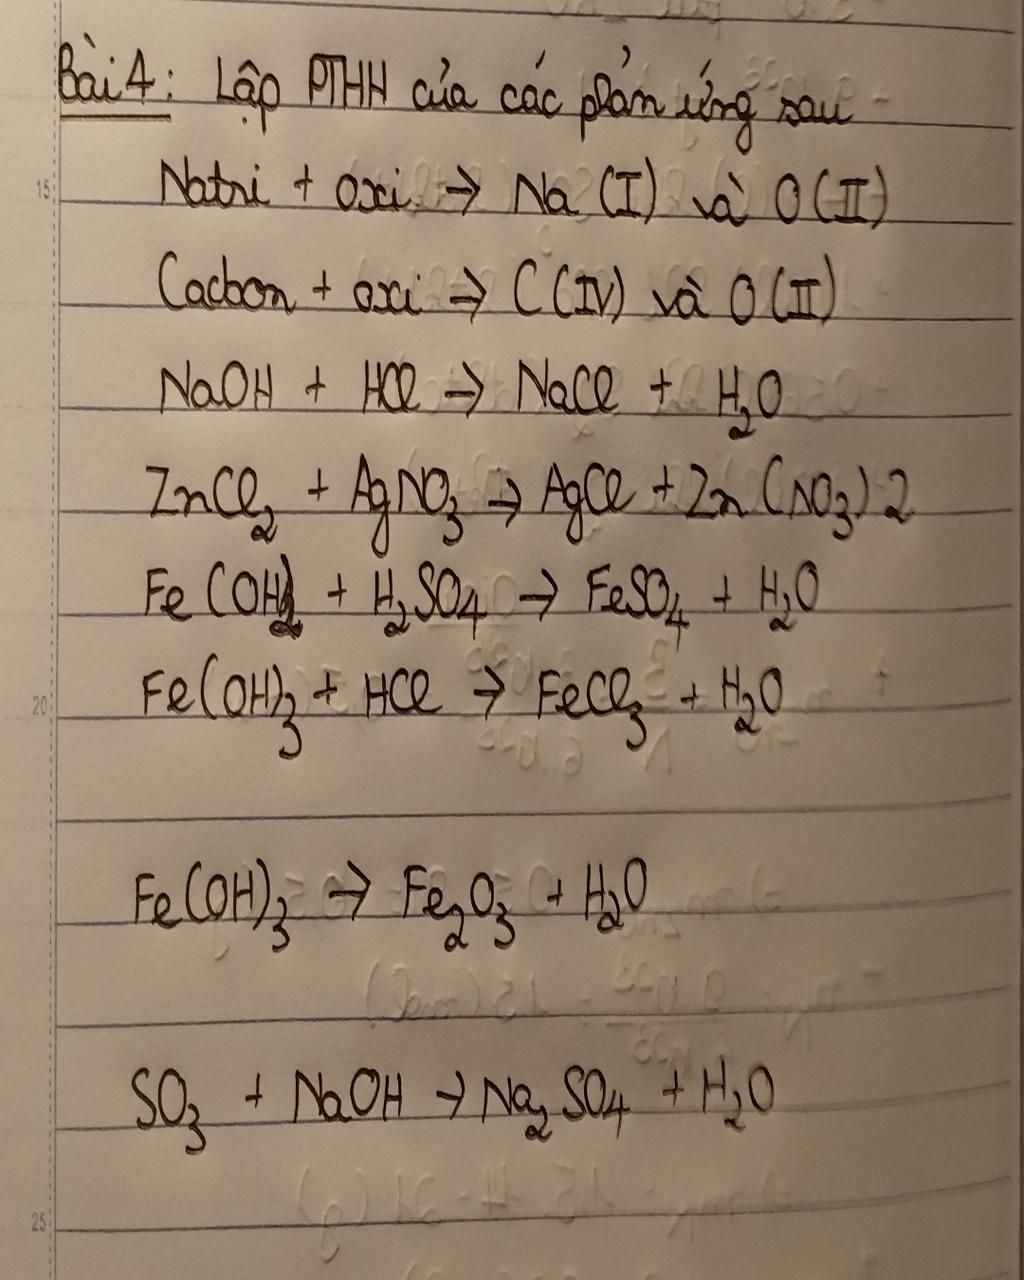 Bài 4: Lập PTHH của các phản ứng sau
15 Natri + oxi → Na (I) và O (II)
Cacbon + oxi → C (IV) và O (II)
NaOH + HCl → NaCl + H₂O
ZnCl₂ + AgNO₃ → AgCl + Zn (NO₃) 2
Fe (OH)₂ + H₂SO₄ → FeSO₄ + H₂O
20 Fe(OH)₃ + HCl → FeCl₃ + H₂O
Fe(OH)₃ → Fe₂O₃ + H₂O
SO₃ + NaOH → Na₂SO₄ + H₂O
25